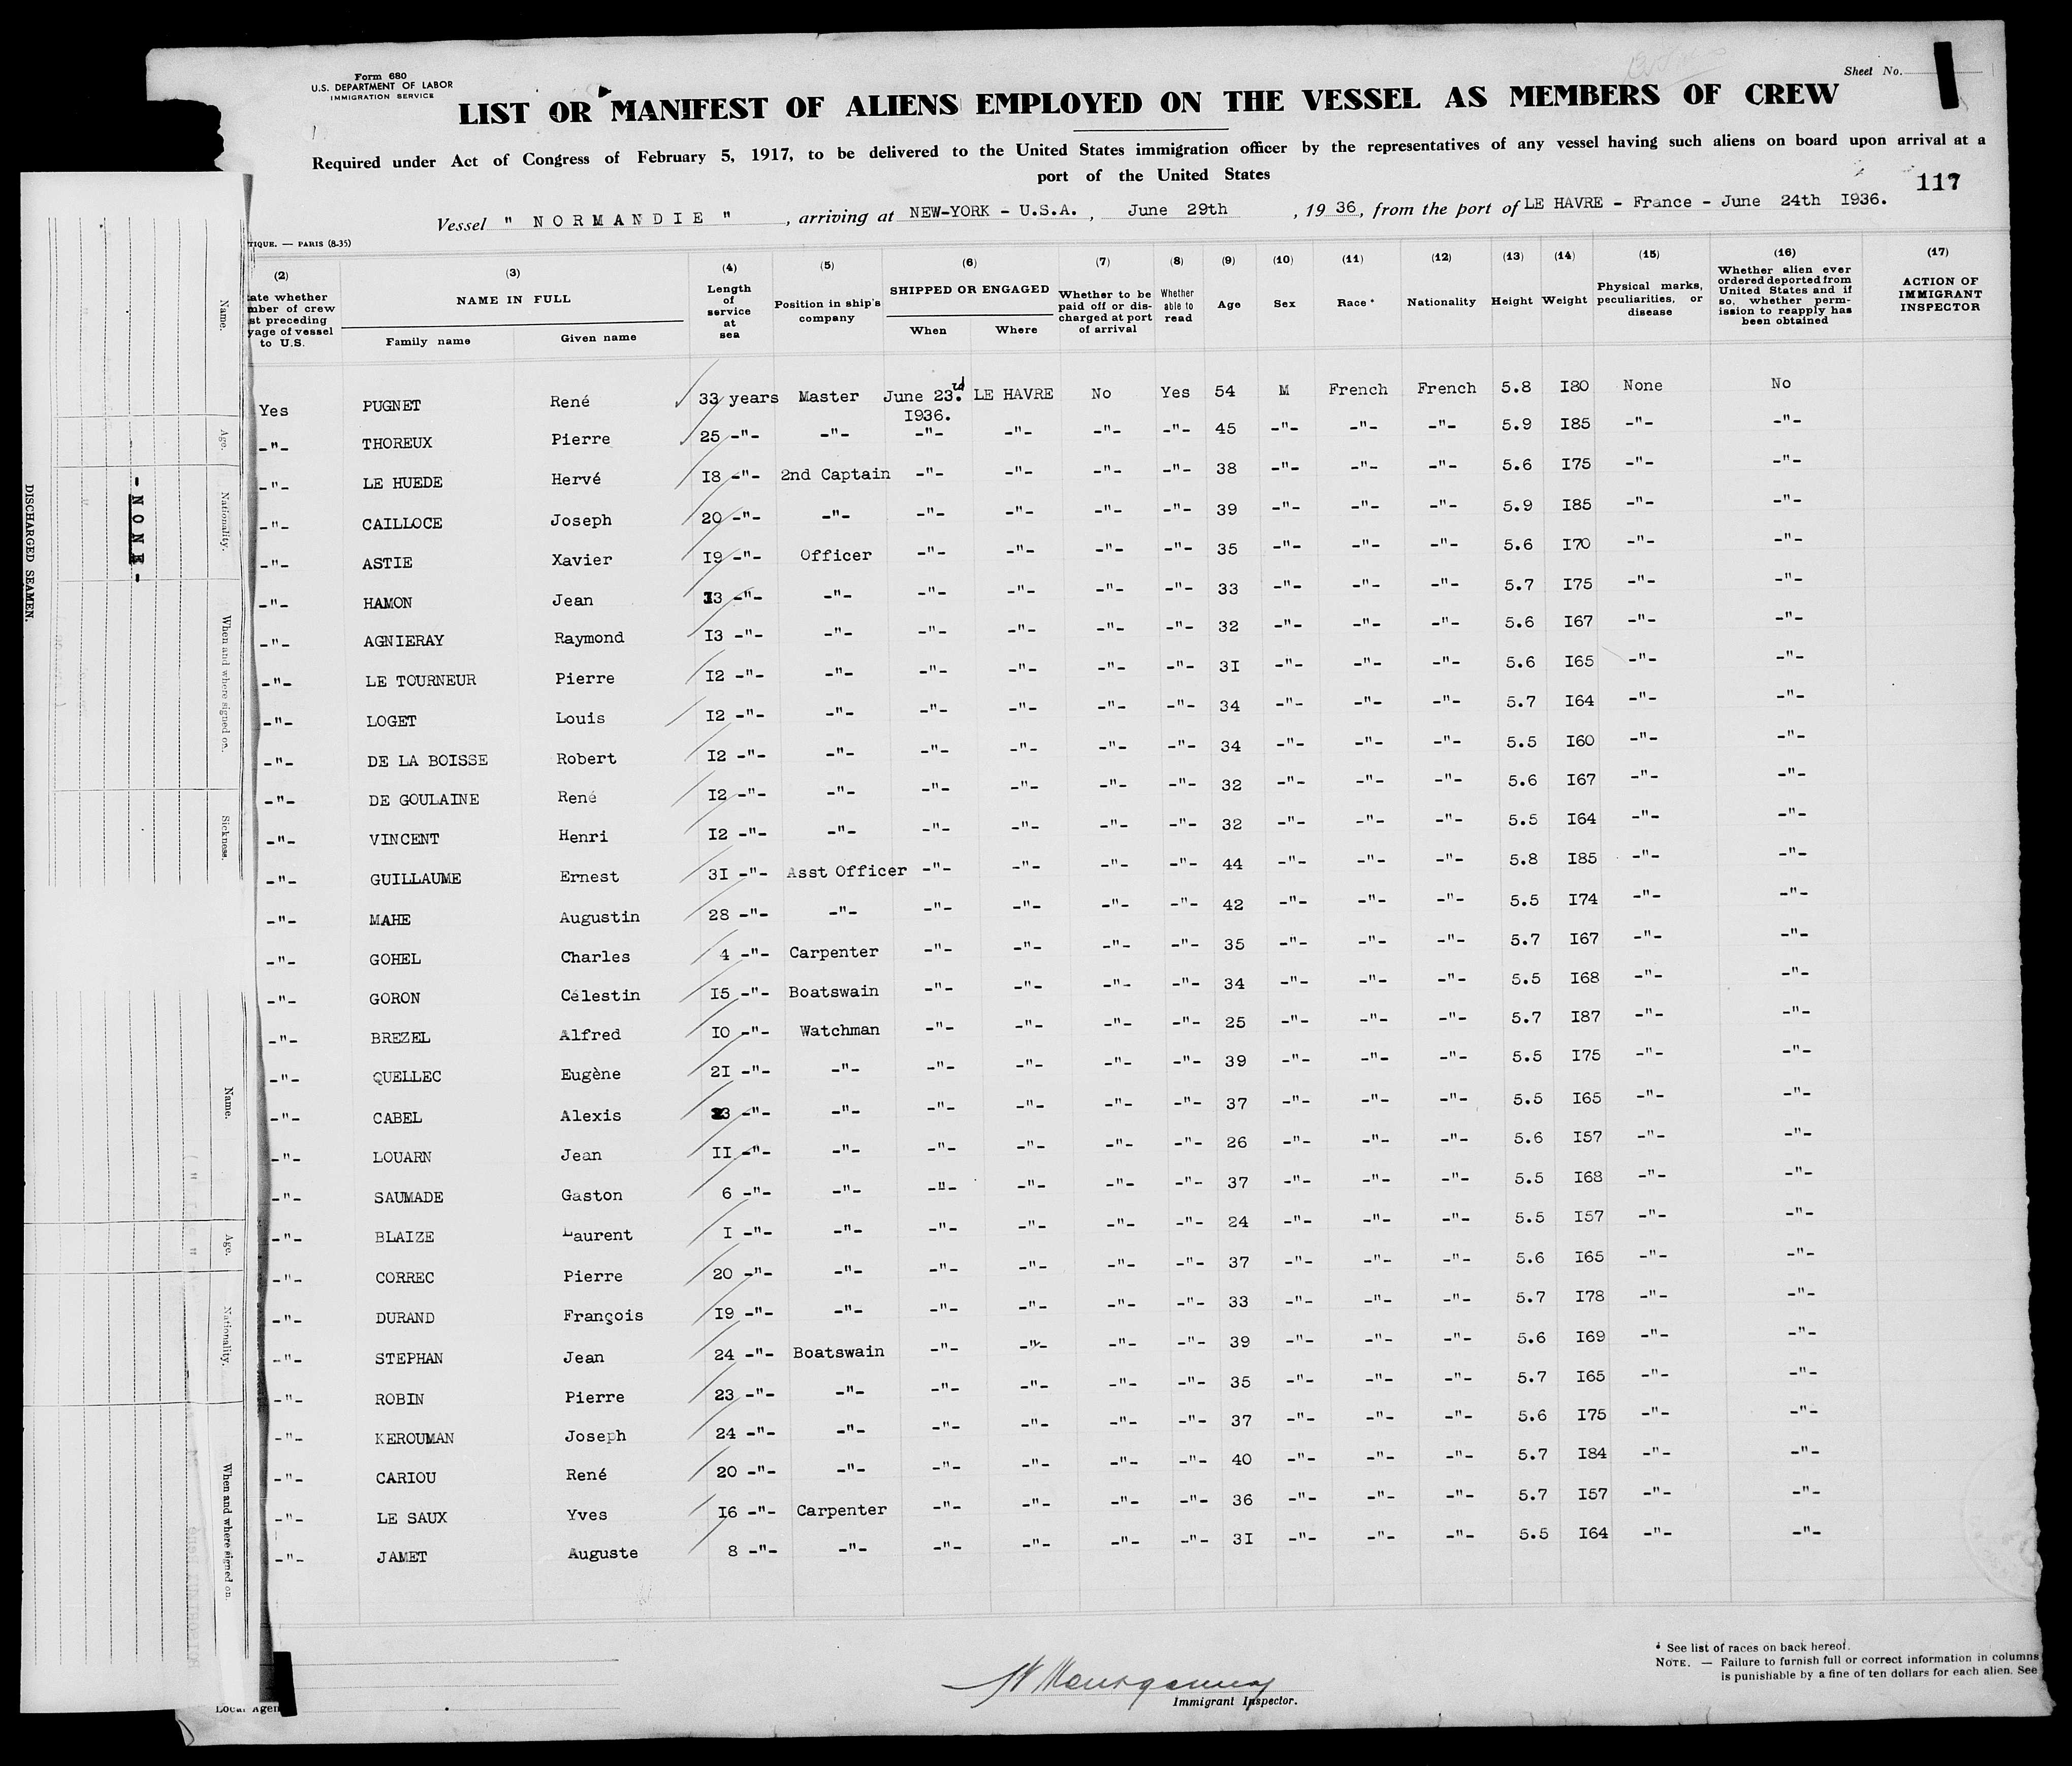 Form 680
U.S. DEPARTMENT OF LABOR
IMMIGRATION SERVICE
Sheet No.
LIST OR MANIFEST OF ALIENS EMPLOYED ON THE VESSEL AS MEMBERS OF CREW
Required under Act of Congress of February 5, 1917, to be delivered to the United States immigration officer by the representatives of any vessel having such aliens on board upon arrival at a
port of the United States
117
Vessel " NORMANDIE " , arriving at NEW-YORK - U.S.A. , June 29th , 19 36, from the port of LE HAVRE - France - June 24th I936.
TIQUE. — PARIS (8-35)
(2) (3) (4) (5) (6) (7) (8) (9) (10) (11) (12) (13) (14) (15) (16) (17)
ate whether mber of crew st preceding yage of vessel to U.S.
NAME IN FULL
Family name Given name
Length of service at sea
Position in ship's company
SHIPPED OR ENGAGED
When Where
Whether to be paid off or discharged at port of arrival
Whether able to read
Age
Sex
Race *
Nationality
Height
Weight
Physical marks, peculiarities, or disease
Whether alien ever ordered deported from United States and if so, whether permission to reapply has been obtained
ACTION OF IMMIGRANT INSPECTOR
Yes PUGNET René 33 years Master June 23.rd I936. LE HAVRE No Yes 54 M French French 5.8 I80 None No
-"- THOREUX Pierre 25 -"- -"- -"- -"- -"- -"- 45 -"- -"- -"- 5.9 I85 -"- -"-
-"- LE HUEDE Hervé I8 -"- 2nd Captain -"- -"- -"- -"- 38 -"- -"- -"- 5.6 I75 -"- -"-
-"- CAILLOCE Joseph 20 -"- -"- -"- -"- -"- -"- 39 -"- -"- -"- 5.9 I85 -"- -"-
-"- ASTIE Xavier I9 -"- Officer -"- -"- -"- -"- 35 -"- -"- -"- 5.6 I70 -"- -"-
-"- HAMON Jean I3 -"- -"- -"- -"- -"- -"- 33 -"- -"- -"- 5.7 I75 -"- -"-
-"- AGNIERAY Raymond I3 -"- -"- -"- -"- -"- -"- 32 -"- -"- -"- 5.6 I67 -"- -"-
-"- LE TOURNEUR Pierre I2 -"- -"- -"- -"- -"- -"- 3I -"- -"- -"- 5.6 I65 -"- -"-
-"- LOGET Louis I2 -"- -"- -"- -"- -"- -"- 34 -"- -"- -"- 5.7 I64 -"- -"-
-"- DE LA BOISSE Robert I2 -"- -"- -"- -"- -"- -"- 34 -"- -"- -"- 5.5 I60 -"- -"-
-"- DE GOULAINE René I2 -"- -"- -"- -"- -"- -"- 32 -"- -"- -"- 5.6 I67 -"- -"-
-"- VINCENT Henri I2 -"- -"- -"- -"- -"- -"- 32 -"- -"- -"- 5.5 I64 -"- -"-
-"- GUILLAUME Ernest 3I -"- Asst Officer -"- -"- -"- -"- 44 -"- -"- -"- 5.8 I85 -"- -"-
-"- MAHE Augustin 28 -"- -"- -"- -"- -"- -"- 42 -"- -"- -"- 5.5 I74 -"- -"-
-"- GOHEL Charles 4 -"- Carpenter -"- -"- -"- -"- 35 -"- -"- -"- 5.7 I67 -"- -"-
-"- GORON Célestin I5 -"- Boatswain -"- -"- -"- -"- 34 -"- -"- -"- 5.5 I68 -"- -"-
-"- BREZEL Alfred I0 -"- Watchman -"- -"- -"- -"- 25 -"- -"- -"- 5.7 I87 -"- -"-
-"- QUELLEC Eugène 2I -"- -"- -"- -"- -"- -"- 39 -"- -"- -"- 5.5 I75 -"- -"-
-"- CABEL Alexis 23 -"- -"- -"- -"- -"- -"- 37 -"- -"- -"- 5.5 I65 -"- -"-
-"- LOUARN Jean II -"- -"- -"- -"- -"- -"- 26 -"- -"- -"- 5.6 I57 -"- -"-
-"- SAUMADE Gaston 6 -"- -"- -"- -"- -"- -"- 37 -"- -"- -"- 5.5 I68 -"- -"-
-"- BLAIZE Laurent I -"- -"- -"- -"- -"- -"- 24 -"- -"- -"- 5.5 I57 -"- -"-
-"- CORREC Pierre 20 -"- -"- -"- -"- -"- -"- 37 -"- -"- -"- 5.6 I65 -"- -"-
-"- DURAND François I9 -"- -"- -"- -"- -"- -"- 33 -"- -"- -"- 5.7 I78 -"- -"-
-"- STEPHAN Jean 24 -"- Boatswain -"- -"- -"- -"- 39 -"- -"- -"- 5.6 I69 -"- -"-
-"- ROBIN Pierre 23 -"- -"- -"- -"- -"- -"- 35 -"- -"- -"- 5.7 I65 -"- -"-
-"- KEROUMAN Joseph 24 -"- -"- -"- -"- -"- -"- 37 -"- -"- -"- 5.6 I75 -"- -"-
-"- CARIOU René 20 -"- -"- -"- -"- -"- -"- 40 -"- -"- -"- 5.7 I84 -"- -"-
-"- LE SAUX Yves I6 -"- Carpenter -"- -"- -"- -"- 36 -"- -"- -"- 5.7 I57 -"- -"-
-"- JAMET Auguste 8 -"- -"- -"- -"- -"- -"- 3I -"- -"- -"- 5.5 I64 -"- -"-
* See list of races on back hereof.
NOTE. — Failure to furnish full or correct information in columns
is punishable by a fine of ten dollars for each alien. See
Immigrant Inspector.
Local Agen
DISCHARGED SEAMEN.
- NONE -
Name. Age. Nationality. When and where signed on. Sickness.
Name. Age. Nationality. When and where signed on.